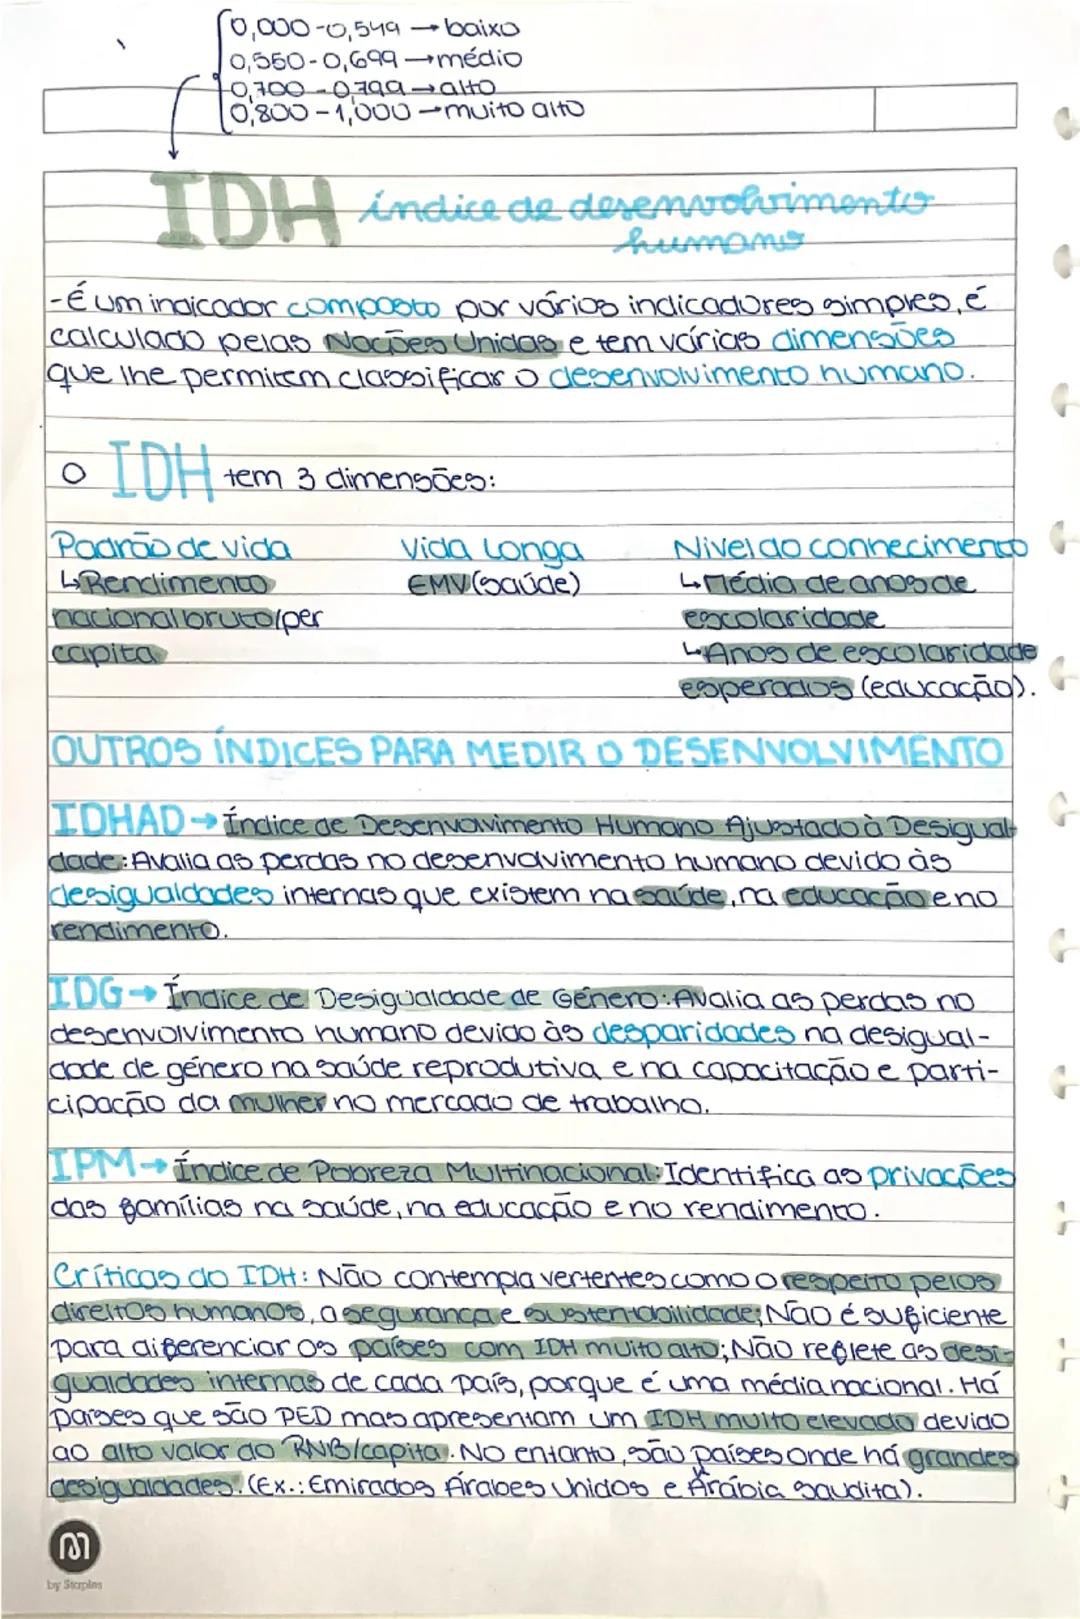 0,000-0,549 → baixo
0,550-0,699 → médio
0,700-0,799 → alto
0,800-1,000 → muito alto
IDH índice de desenvolvimento
humano
-É um indicador composto por vários indicadores simples, é
calculado pelas Nações Unidas e tem várias dimensões
que lhe permitem classificar o desenvolvimento humano.
O IDH tem 3 dimensões:
Padrão de vida Vida Longa Nível do conhecimento
↳Rendimento EMV(saúde) ↳Média de anos de
nacional bruto/per escolaridade
capita ↳Anos de escolaridade
esperados (educação).
OUTROS ÍNDICES PARA MEDIR O DESENVOLVIMENTO
IDHAD→Índice de Desenvolvimento Humano Ajustado à Desigual-
dade: Avalia as perdas no desenvolvimento humano devido às
desigualdades internas que existem na saúde, na educação e no
rendimento.
IDG→Índice de Desigualdade de Género: Avalia as perdas no
desenvolvimento humano devido às desparidades na desigual-
dade de género na saúde reprodutiva e na capacitação e parti-
cipação da mulher no mercado de trabalho.
IPM→Índice de Pobreza Multinacional: Identifica as privações
das famílias na saúde, na educação e no rendimento.
Críticas do IDH: Não contempla vertentes como o respeito pelos
direitos humanos, a segurança e sustentabilidade; Não é suficiente
para diferenciar os países com IDH muito alto; Não reflete as desi-
gualdades internas de cada país, porque é uma média nacional. Há
países que são PED mas apresentam um IDH muito elevado devido
ao alto valor do RNB/capita. No entanto, são países onde há grandes
desigualdades. (Ex.: Emirados Árabes Unidos e Arábia Saudita).
by Staples